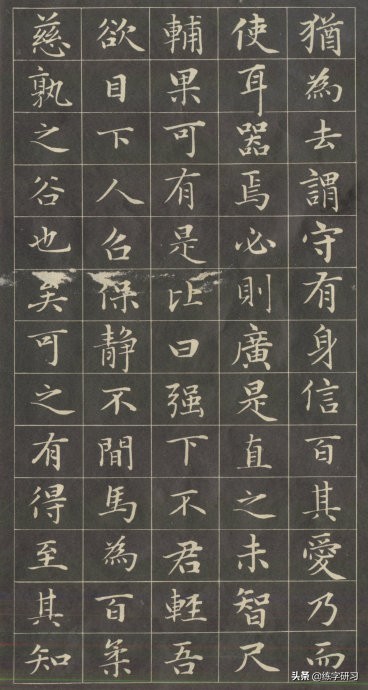 猶為去謂守有身信百其愛乃而
使耳器焉必則廣是直之未智尺
輔果可有是比曰强下不君輕吾
欲目下人保靜不間馬為百
慈孰之谷也矣可之有得至其知
头条@练字研习